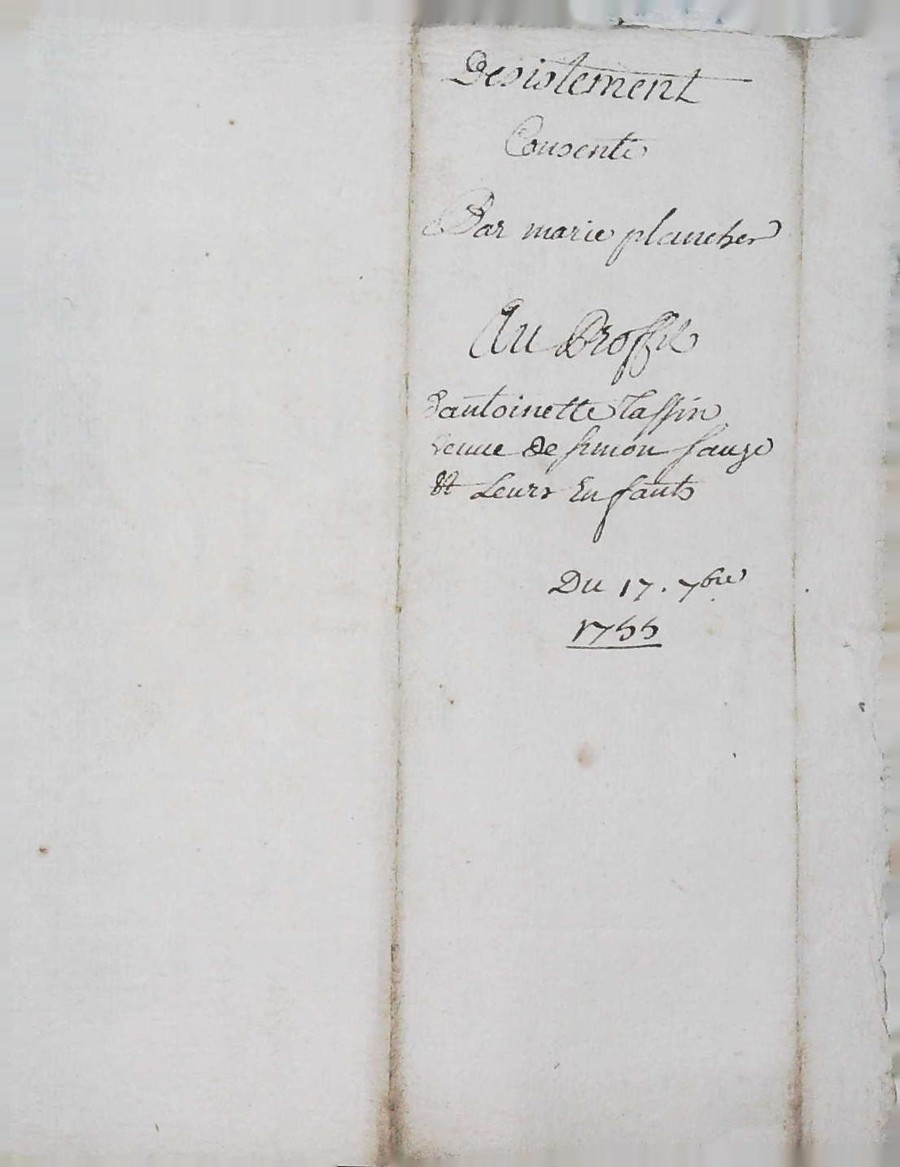 Desistement
Consenti
Par marie plancher
Au Proffit
d'antoinette taffin
veuve de simon sauze
Et Leurs Enfants
Du 17. 7bre
1755